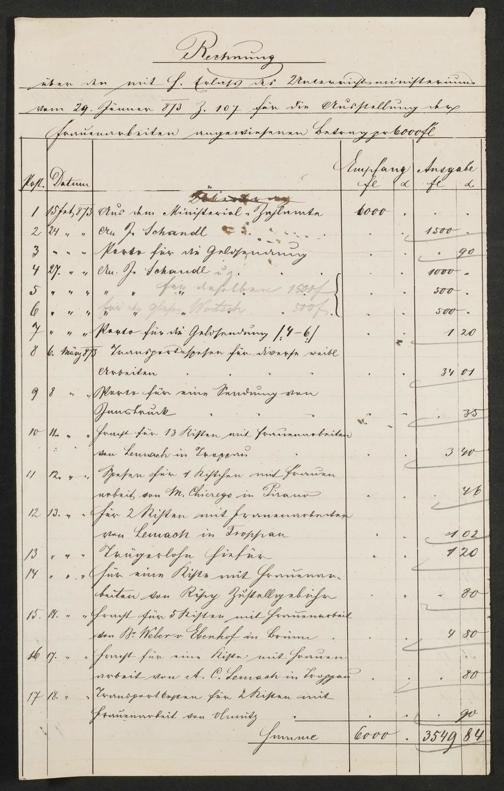 Rechnung
über den mit h. Erlaß des Unterrichtsministeriums
vom 29. Jänner 873 Z. 107 für die Ausstellung der
Frauenarbeiten angewiesenen Betrag pr 6000 fl
Empfang Ausgabe
Post. Datum fl fl
1 15 Feb. 873 Aus dem Ministerial-Zahlamte 6000 . . .
2 24 " " An J. Schandl 1500 .
3 " " " Porto für die Geldsendung . 90
4 27. " " An J. Schandl 1000 .
5 " " " für denselben 1500 f 500 .
6 " " " 500 f 500 .
7 " " " Porto für die Geldsendung /4-6/ 1 20
8 6. März 873 Transportspesen für diverse weibl.
Arbeiten 34 01
9 8 " " Porto für eine Sendung von
Innsbruck . 35
10 11. " " Fracht für 13 Kisten mit Frauenarbeiten
von Lemach in Troppau 3 40
11 12. " " Spesen für 1 Kistchen mit Frauen
arbeit von M. in Pirano . 46
12 13. " " Für 2 Kisten mit Frauenarbeiten
von Lemach in Troppau 1 02
13 " " " Trägerlohn hiefür 1 20
14 " " " Für eine Kiste mit Frauenar-
beiten von Zustellgebühr . 80
15. 14. " " Fracht für 5 Kisten mit Frauenarbeit
von in Brünn 4 80
16 17. " " Fracht für eine Kiste mit Frauen
arbeit von A. C. Lemach in Troppau . 80
17 18. " " Transportkosten für 2 Kisten mit
Frauenarbeit von Olmütz . 90
Summe 6000 . 3549 84